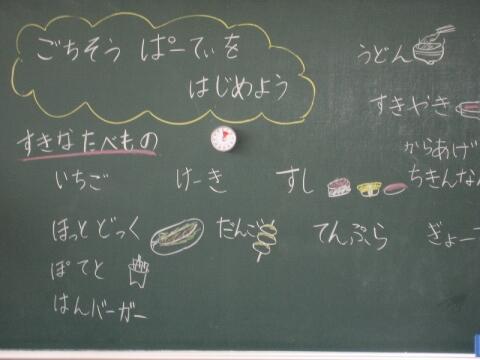 ごちそう ぱーてぃを
はじめよう
すきなたべもの
うどん
すきやき
からあげ
いちご けーき すし ちきんなん
ほっとどっく だんご てんぷら ぎょー
ぽてと
はんバーガー